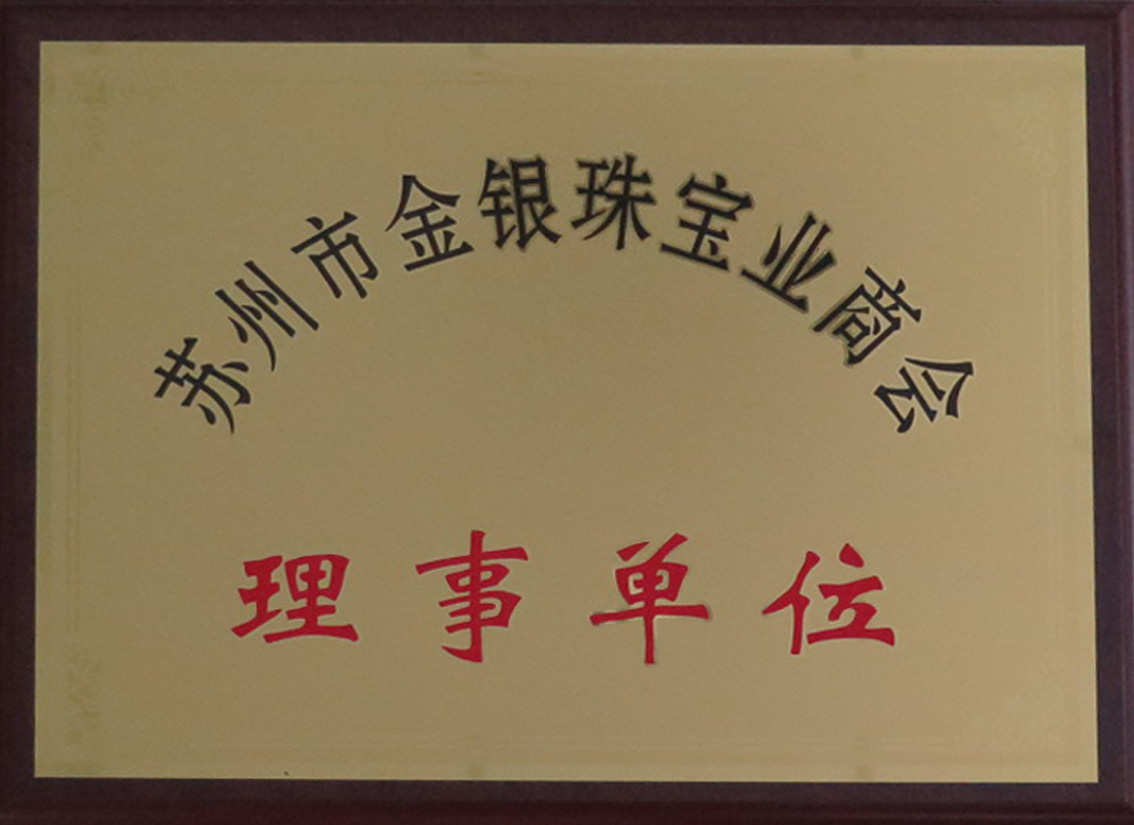 苏州市金银珠宝业商会
理事单位